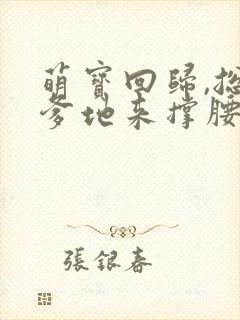 萌寶回歸,總
爹地来撐腰
張銀春